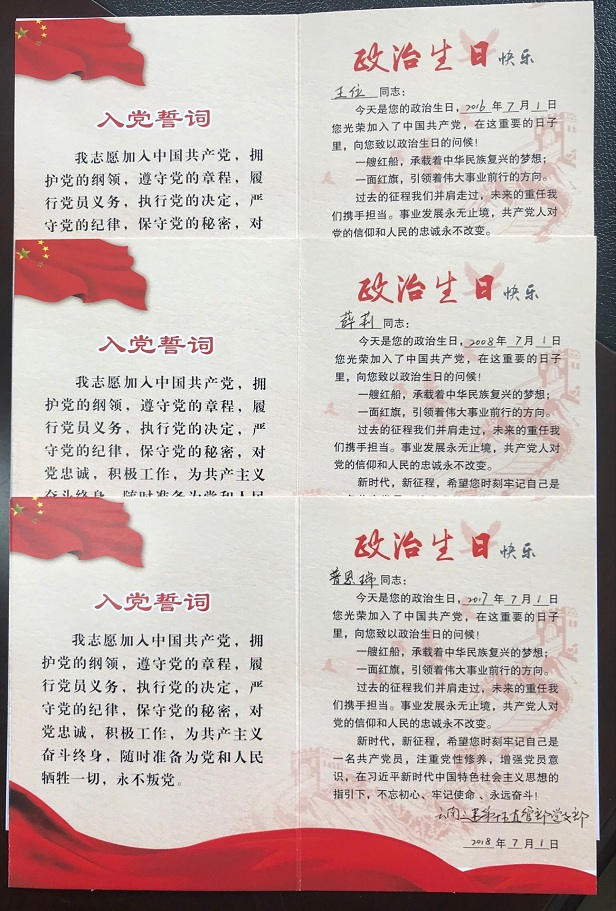 入党誓词
我志愿加入中国共产党，拥
护党的纲领，遵守党的章程，履
行党员义务，执行党的决定，严
守党的纪律，保守党的秘密，对
政治生日快乐
王位 同志：
今天是您的政治生日，2016年7月1日
您光荣加入了中国共产党，在这重要的日子
里，向您致以政治生日的问候！
一艘红船，承载着中华民族复兴的梦想；
一面红旗，引领着伟大事业前行的方向。
过去的征程我们并肩走过，未来的重任我
们携手担当。事业发展永无止境，共产党人对
党的信仰和人民的忠诚永不改变。
入党誓词
我志愿加入中国共产党，拥
护党的纲领，遵守党的章程，履
行党员义务，执行党的决定，严
守党的纪律，保守党的秘密，对
党忠诚，积极工作，为共产主义
奋斗终身，随时准备为党和人民
政治生日快乐
薛莉 同志：
今天是您的政治生日，2008年7月1日
您光荣加入了中国共产党，在这重要的日子
里，向您致以政治生日的问候！
一艘红船，承载着中华民族复兴的梦想；
一面红旗，引领着伟大事业前行的方向。
过去的征程我们并肩走过，未来的重任我
们携手担当。事业发展永无止境，共产党人对
党的信仰和人民的忠诚永不改变。
新时代，新征程，希望您时刻牢记自己是
入党誓词
我志愿加入中国共产党，拥
护党的纲领，遵守党的章程，履
行党员义务，执行党的决定，严
守党的纪律，保守党的秘密，对
党忠诚，积极工作，为共产主义
奋斗终身，随时准备为党和人民
牺牲一切，永不叛党。
政治生日快乐
普恩瑞 同志：
今天是您的政治生日，2017年7月1日
您光荣加入了中国共产党，在这重要的日子
里，向您致以政治生日的问候！
一艘红船，承载着中华民族复兴的梦想；
一面红旗，引领着伟大事业前行的方向。
过去的征程我们并肩走过，未来的重任我
们携手担当。事业发展永无止境，共产党人对
党的信仰和人民的忠诚永不改变。
新时代，新征程，希望您时刻牢记自己是
一名共产党员，注重党性修养，增强党员意
识，在习近平新时代中国特色社会主义思想的
指引下，不忘初心、牢记使命、永远奋斗！
直管部党支部
2018年7月1日